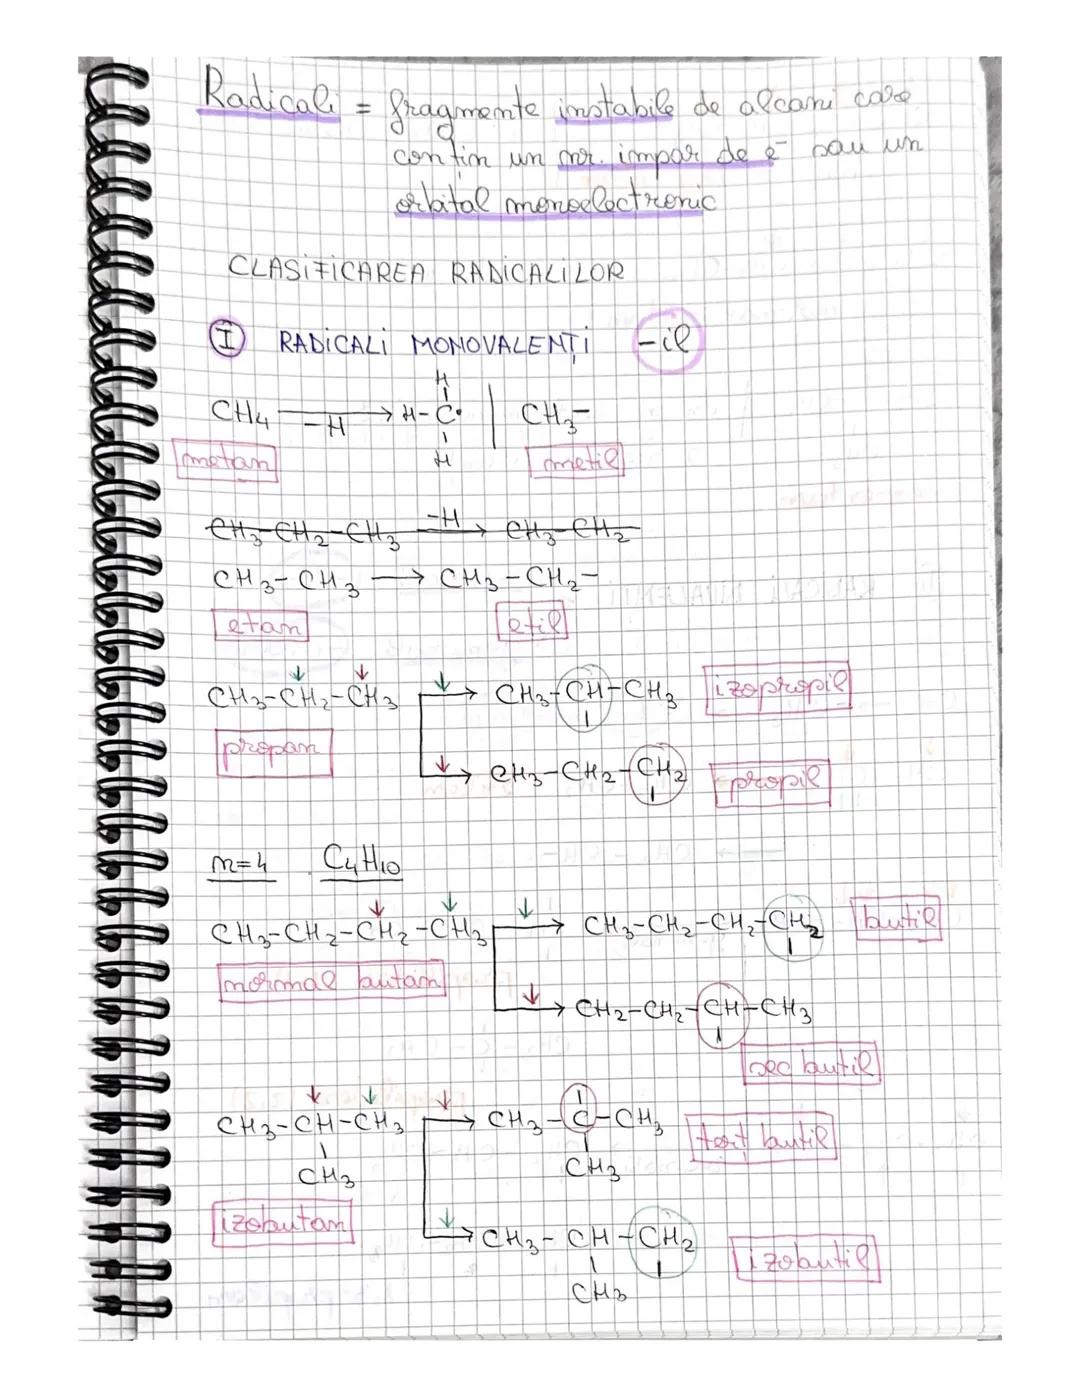 Radicali = fragmente instabile de alcani care
conțin un nr. impar de e⁻ sau un
orbital monoelectronic
CLASIFICAREA RADICALILOR
I RADICALI MONOVALENȚI -il
H
CH4 -H → H-C• | CH3-
H
metan metil
CH3-CH2-CH3 -H → CH3-CH2
CH3-CH3 → CH3-CH2-
etan etil
CH3-CH2-CH3 ↓ → CH3-CH-CH3 izopropil
propan
↓ → CH3-CH2-CH2 propil
n=4 C4H10
CH3-CH2-CH2-CH3 ↓ → CH3-CH2-CH2-CH2 butil
normal butan
↓ → CH2-CH2-CH-CH3
sec butil
CH3-CH-CH3 ↓ → CH3-C-CH3 tert butil
CH3 CH3
izobutan
↓ → CH3-CH-CH2 izobutil
CH3